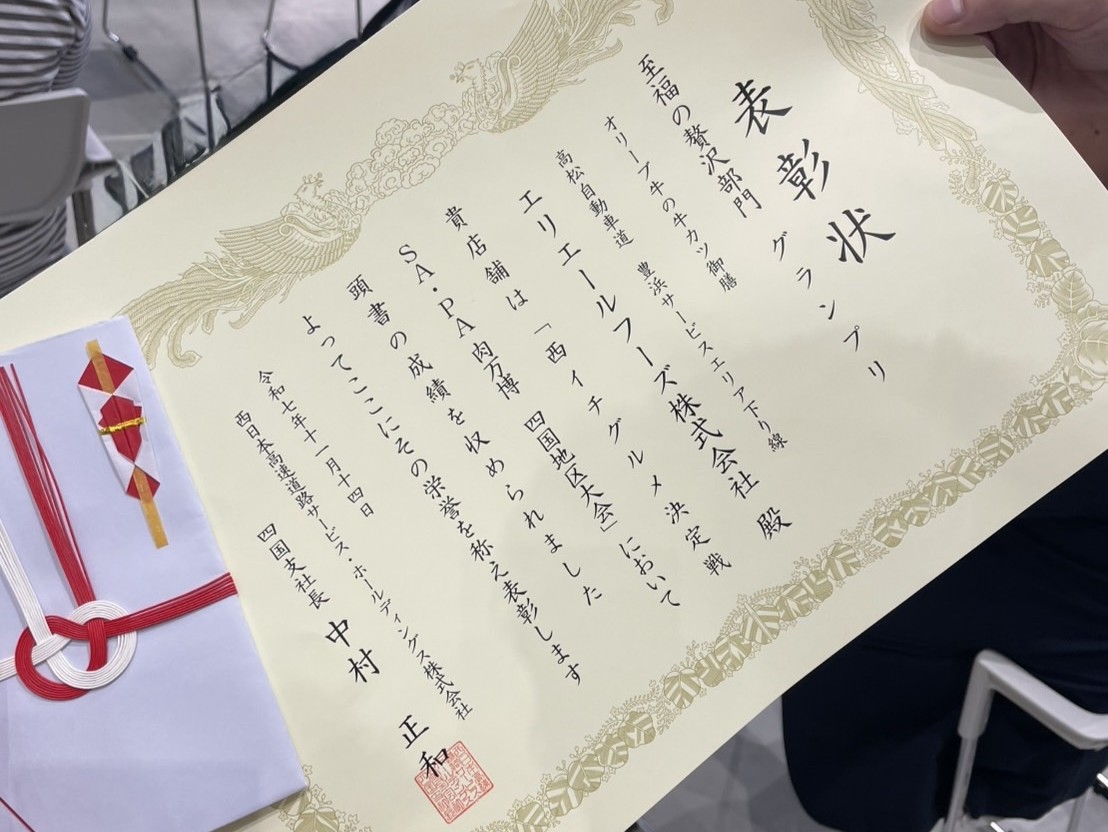 表彰状
グランプリ
至福の贅沢部門
オリーブ牛の牛カツ御膳
高松自動車道 豊浜サービスエリア下り線
エリエールフーズ株式会社 殿
貴店舗は「西イチグルメ決定戦
SA・PA肉万博 四国地区大会」において
頭書の成績を収められました
よってここにその栄誉を称え表彰します
令和七年十一月十四日
西日本高速道路サービス・ホールディングス株式会社
四国支社長 中村 正和